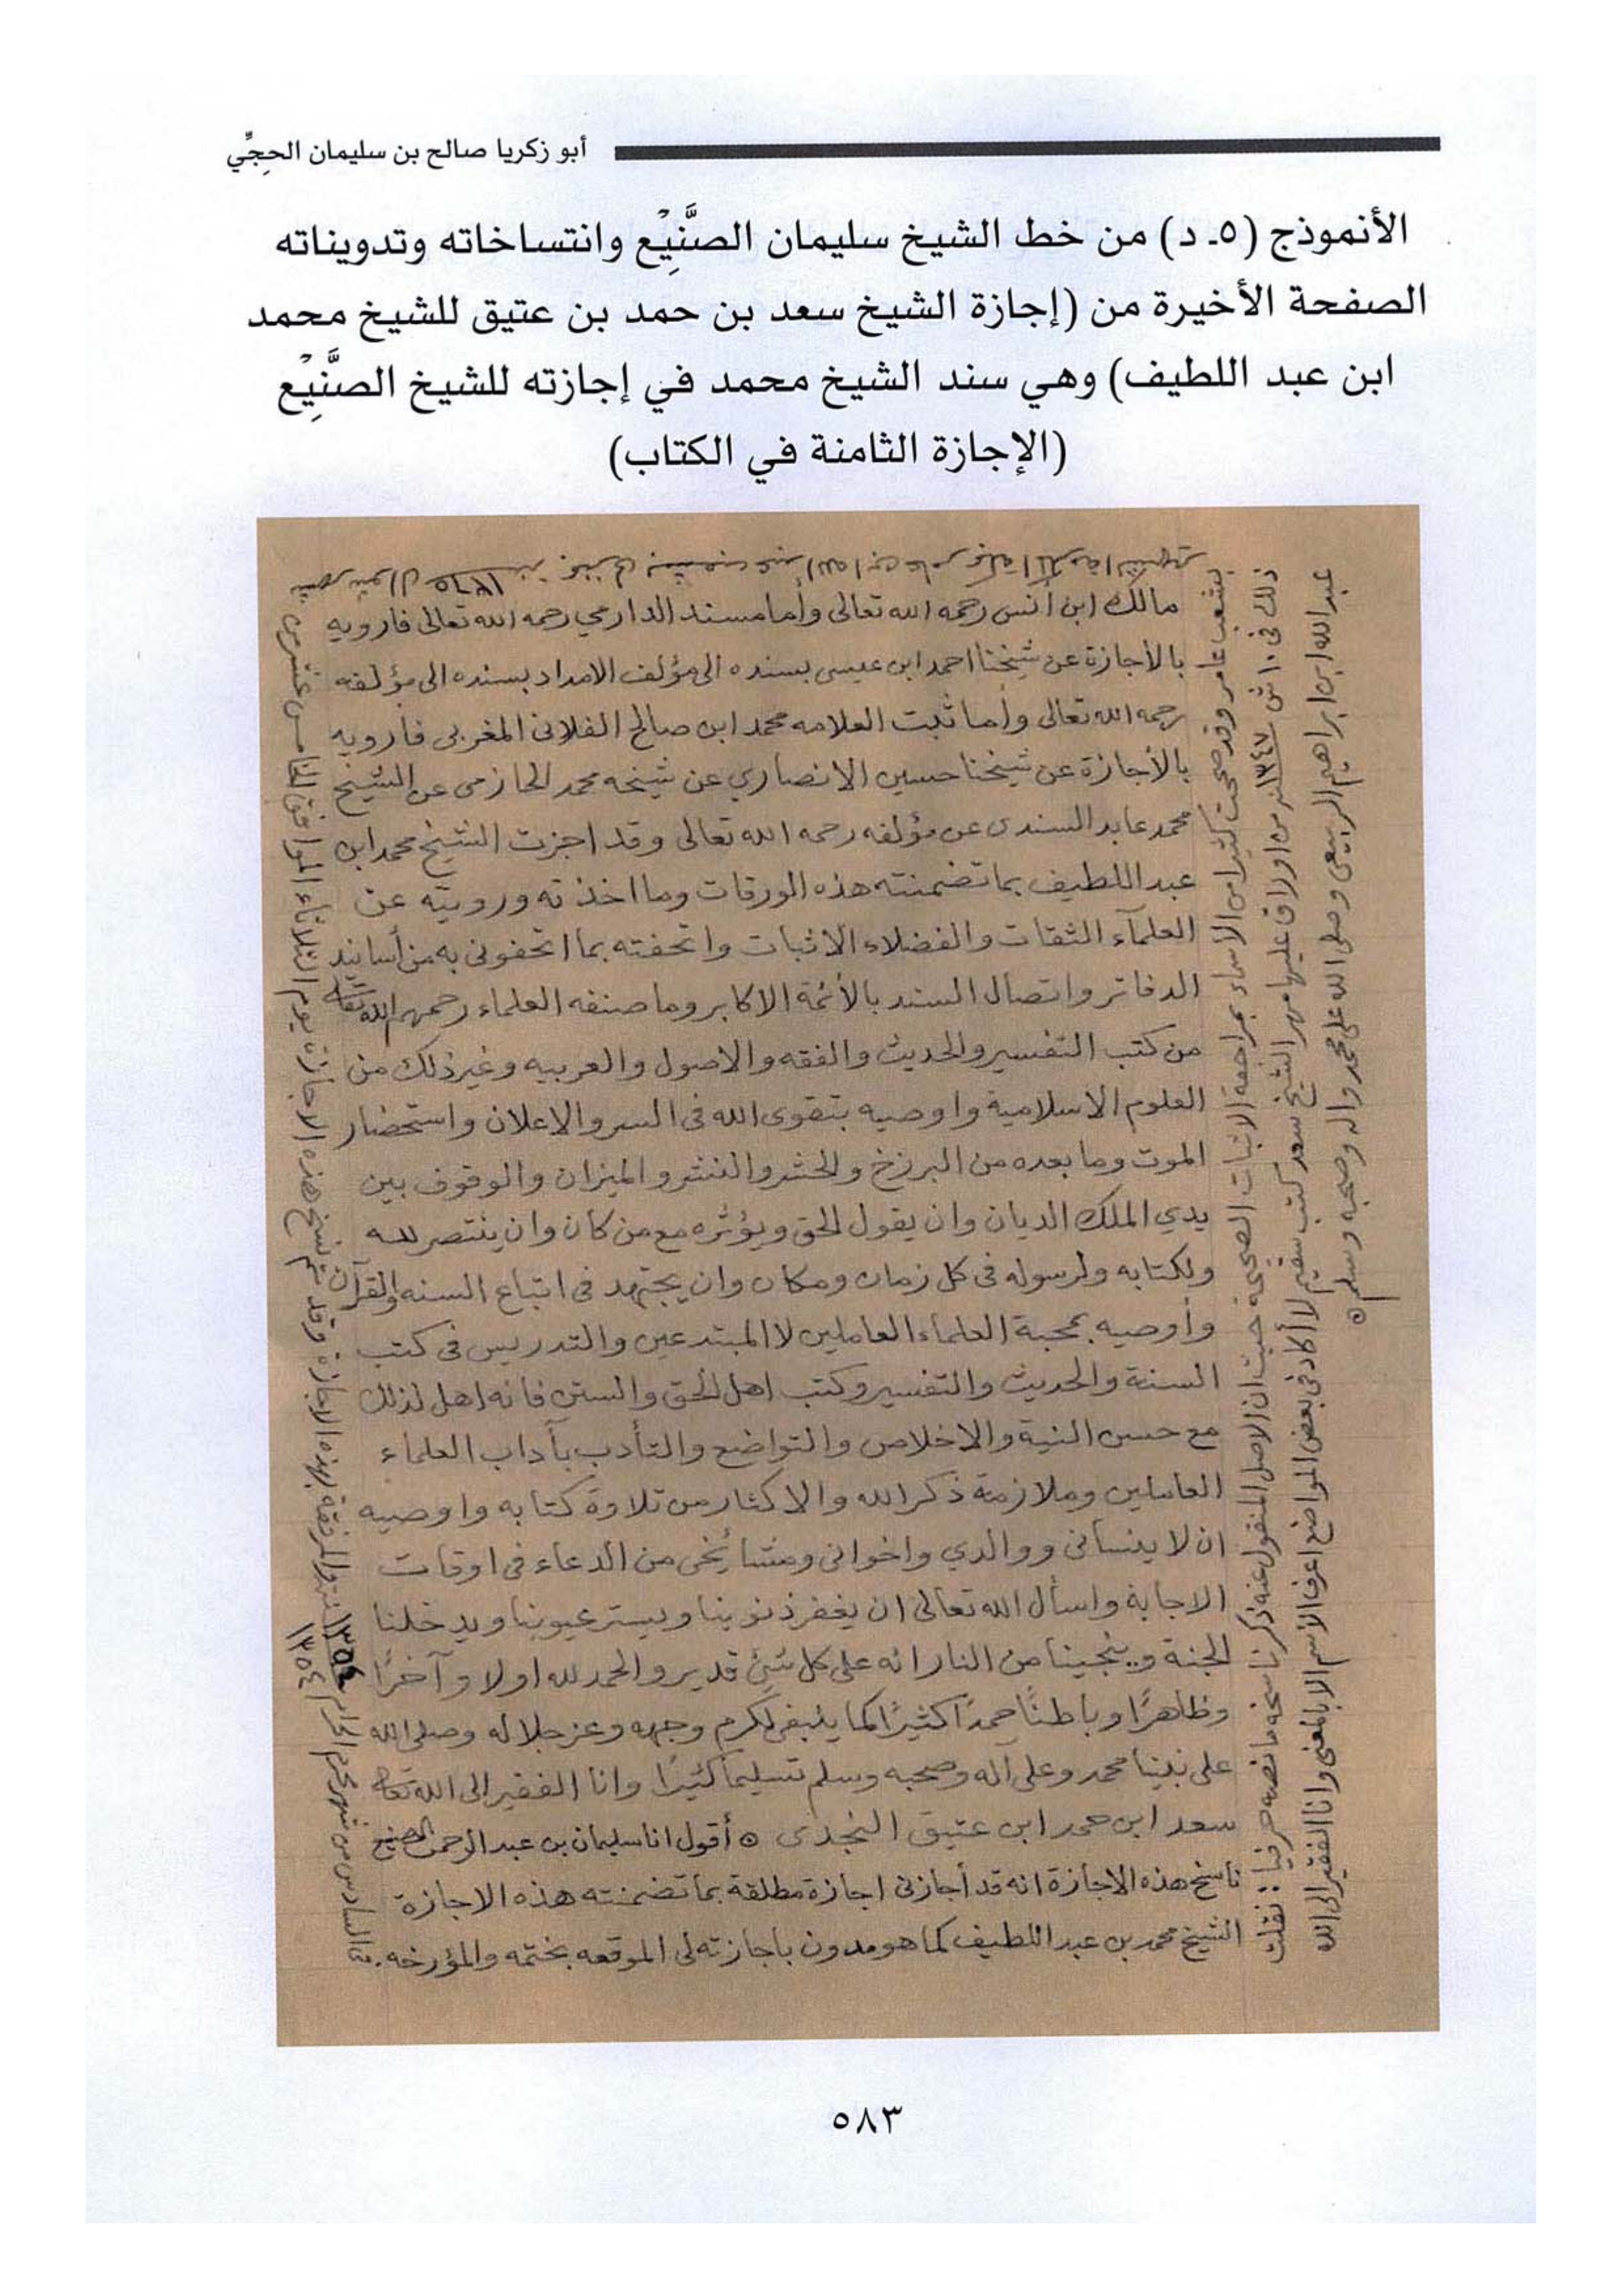 أبو زكريا صالح بن سليمان الحِجِّي
الأنموذج (٥ـ د) من خط الشيخ سليمان الصنَّيِْع وانتساخاته وتدويناته
الصفحة الأخيرة من (إجازة الشيخ سعد بن حمد بن عتيق للشيخ محمد
ابن عبد اللطيف) وهي سند الشيخ محمد في إجازته للشيخ الصنَّيِْع
(الإجازة الثامنة في الكتاب)
مالك ابن أنس رحمه الله تعالى وأما مسند الدارمي رحمه الله تعالى فارويه
بالأجازة عن شيخنا احمد ابن عيسى بسنده الى مؤلف الامداد بسنده الى مؤلفه
رحمه الله تعالى وأما ثبت العلامه محمد ابن صالح الفلانى المغربى فارويه
بالأجازة عن شيخنا حسين الانصاري عن شيخه محمد الحازمى عن الشيخ
محمد عابد السندى عن مؤلفه رحمه الله تعالى وقد اجزت الشيخ محمد ابن
عبد اللطيف بما تضمنته هذه الورقات وما اخذته ورويته عن
العلمآء الثقات والفضلاء الاثبات واتحفته بما اتحفونى به من أسانيد
الدفاتر واتصال السند بالأئمة الاكابر وما صنفه العلماء رحمهم الله تعالى
من كتب التفسير والحديث والفقه والاصول والعربيه وغير ذلك من
العلوم الاسلامية واوصيه بتقوى الله فى السر والاعلان واستحضار
الموت وما بعده من البرزخ والحشر والنشر والميزان والوقوف بين
يدي الملك الديان وان يقول الحق ويؤثره مع من كان وان ينتصر لله
ولكتابه ولرسوله فى كل زمان ومكان وان يجتهد فى اتباع السنه والقرآن
وأوصيه بمحبة العلماء العاملين لا المبتدعين والتدريس فى كتب
السنة والحديث والتفسير وكتب اهل الحق والسنن فانه اهل لذلك
مع حسن النية والاخلاص والتواضع والتأدب بآداب العلماء
العاملين وملازمة ذكر الله والاكثار من تلاوة كتابه واوصيه
ان لا ينسانى ووالدي واخوانى ومشائخى من الدعاء فى اوقات
الاجابة واسأل الله تعالى ان يغفر ذنوبنا ويستر عيوبنا ويدخلنا
الجنة وينجينا من النار انه على كل شئ قدير والحمد لله اولا وآخرًا
وظاهرًا وباطنًا حمدًا كثيرًا كما ينبغى لكرم وجهه وعز جلاله وصلى الله
على نبينا محمد وعلى آله وصحبه وسلم تسليما كثيرًا وانا الفقير الى الله تعالى
سعد ابن حمد ابن عتيق النجدى ٥ أقول انا سليمان بن عبد الرحمن الصنيع
ناسخ هذه الاجازة انه قد أجازنى اجازة مطلقة بما تضمنته هذه الاجازة
الشيخ محمد بن عبد اللطيف كما هو مدون باجازته لى الموقعه بختمه والمؤرخه
فى السادس من شهر محرم الحرام ١٣٥٤ والمرفقة بهذه الاجازة وقد تم نسخ هذه الاجازة يوم الثلاثاء الموافق الخامس عشر من
شهر شوال ١٣٦٥
بشعب عامر وقد صححت كثيرا من الأسماء بمراجعة الاثبات الصحيحة حيث ان الاصل المنقول عنه ذكر ناسخه ما نصه حرفيا: نقلت
ذلك فى ١٠ ش ١٣٤٧ من اوراق عليها مهر الشيخ سعد كتب سقيم لا أكاد فى بعض المواضع اعرف الأسم الا بالمعنى وانا الفقير الى الله
عبد الله ابن ابراهيم الربيعى وصلى الله على محمد واله وصحبه وسلم ٥
٥٨٣